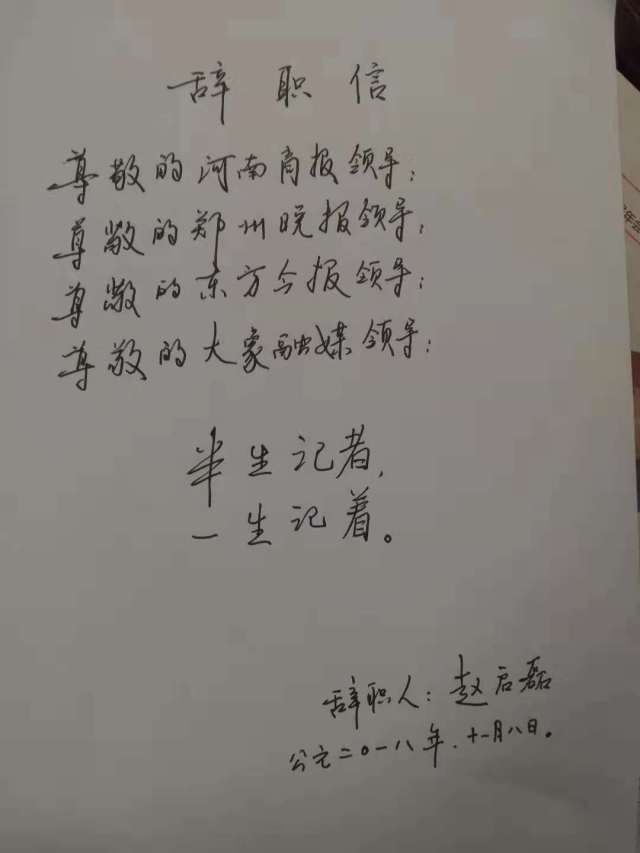 辞职信
尊敬的河南商报领导：
尊敬的郑州晚报领导：
尊敬的东方今报领导：
尊敬的大象融媒领导：
半生记者，
一生记着。
辞职人：赵启磊
公元二〇一八年.十一月八日。